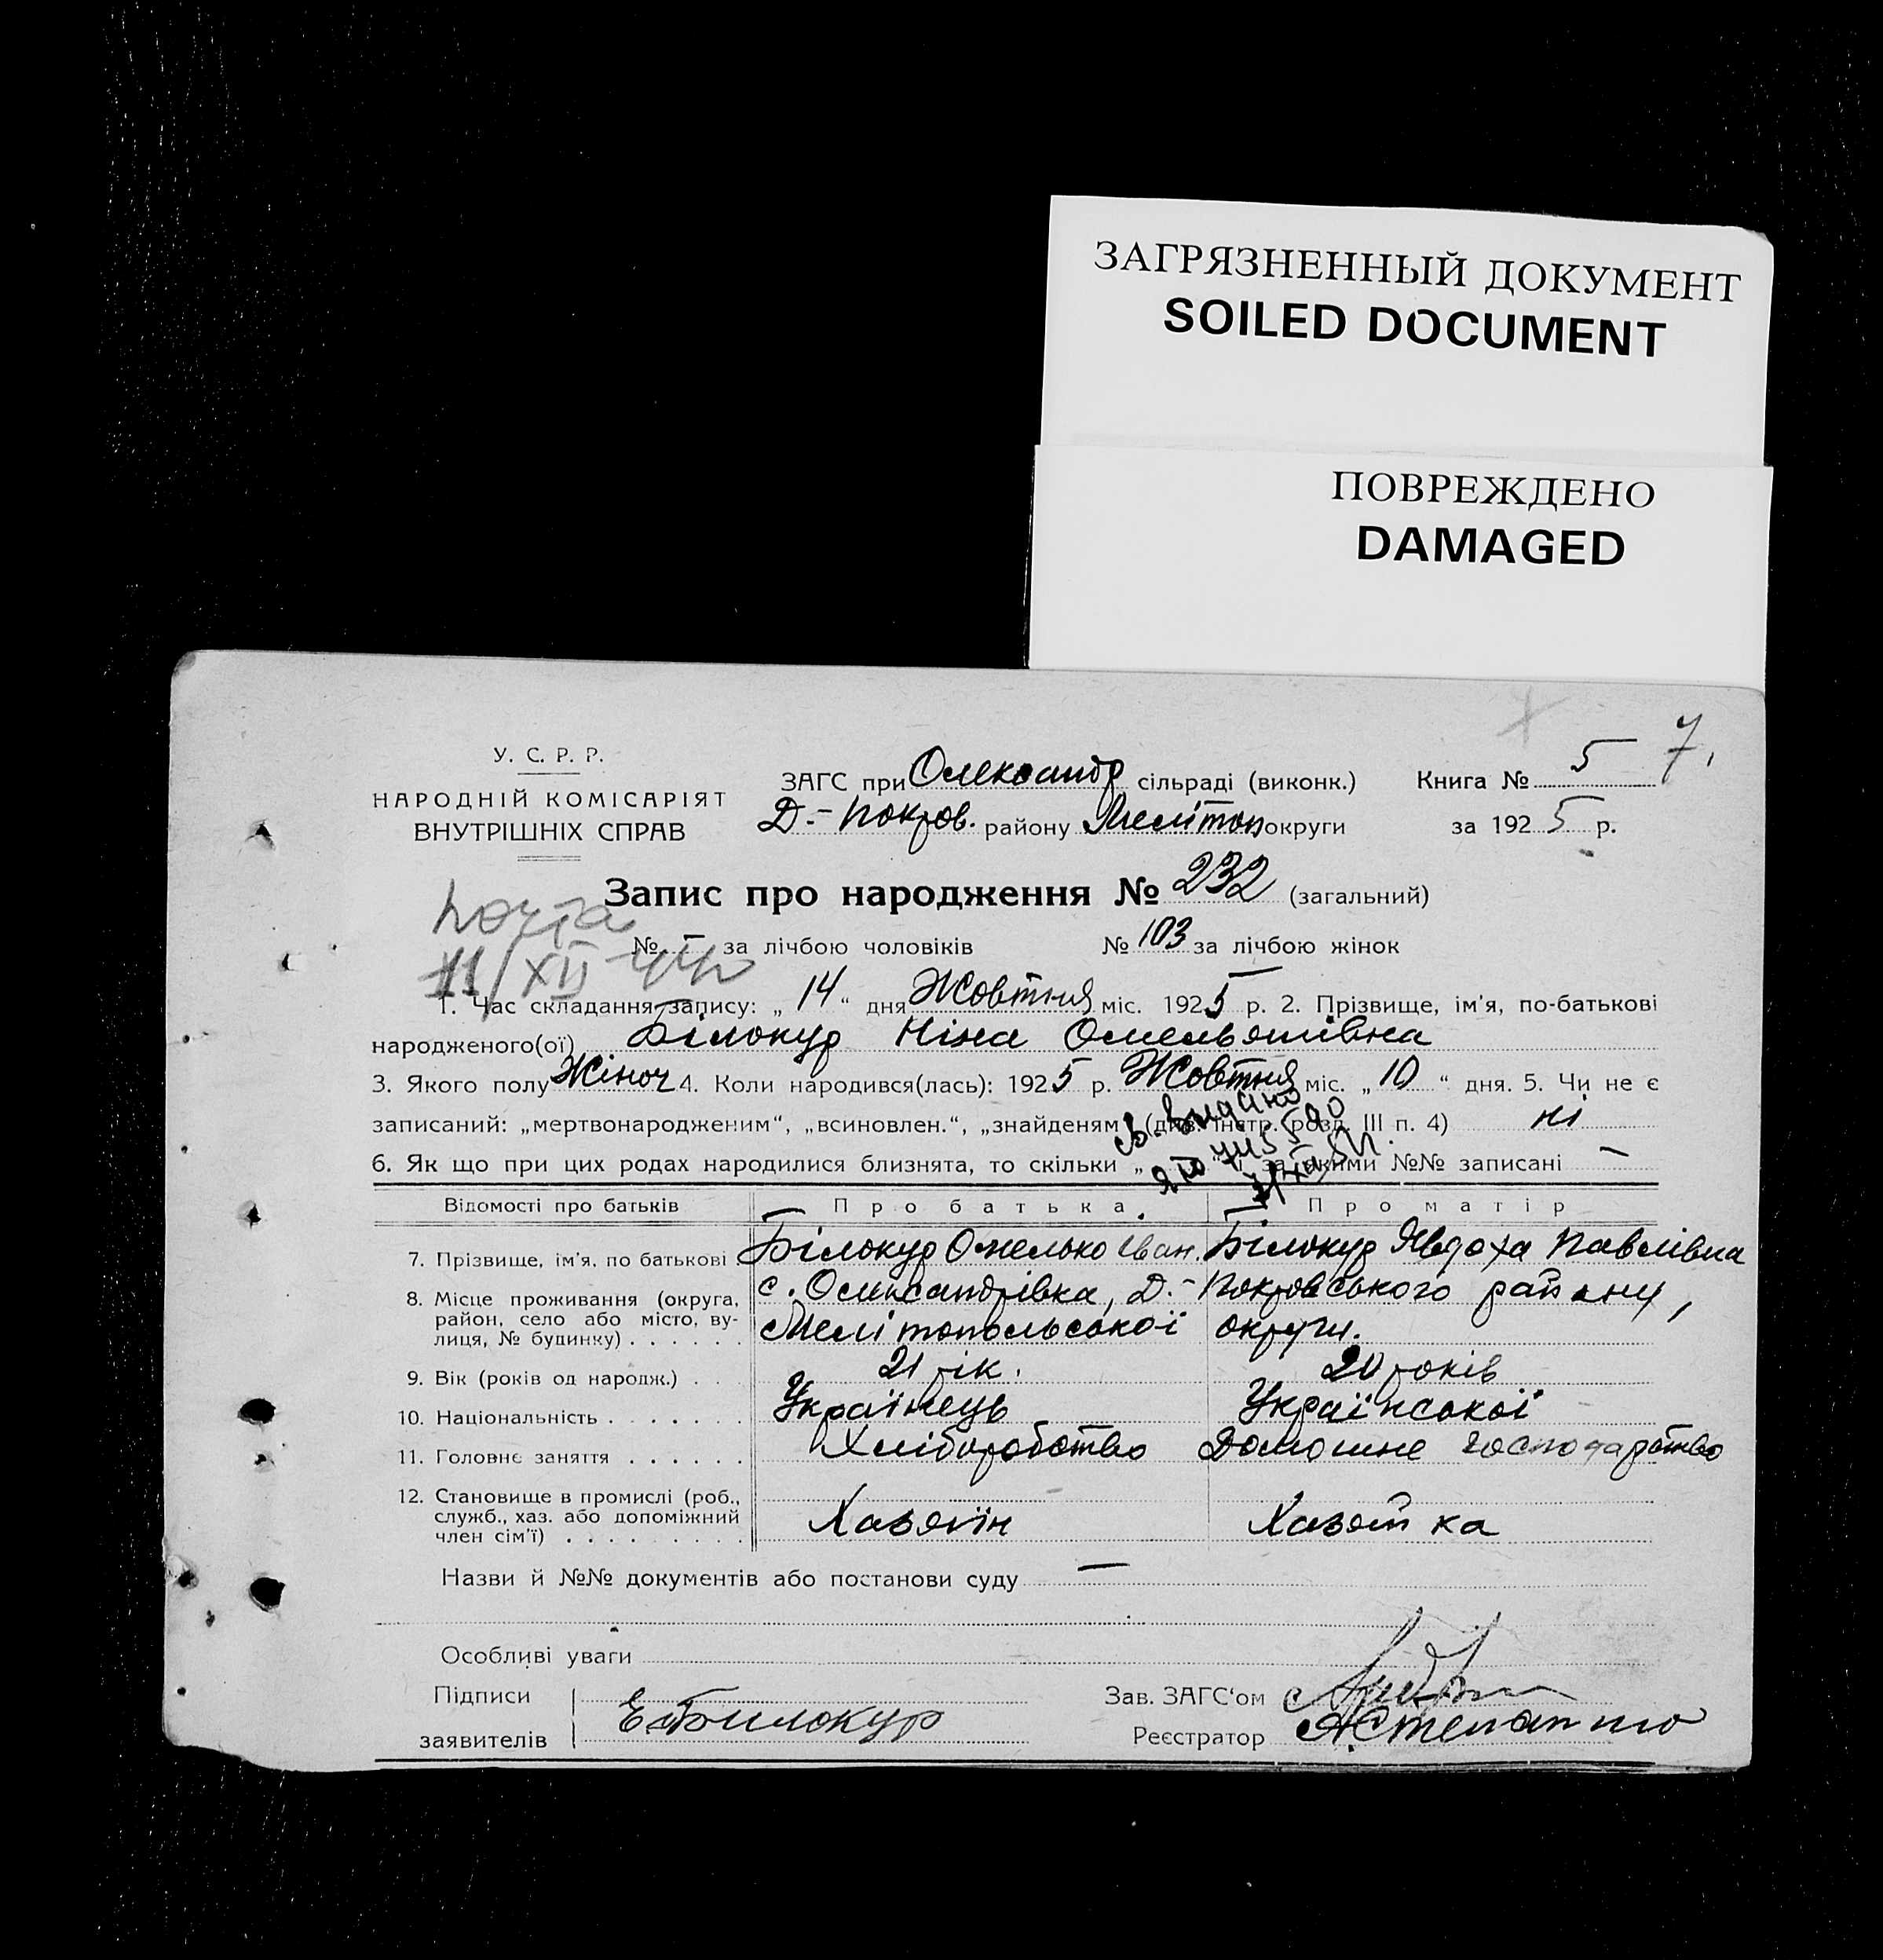 ЗАГРЯЗНЕННЫЙ ДОКУМЕНТ
SOILED DOCUMENT
ПОВРЕЖДЕНО
DAMAGED
У. С. Р. Р.
НАРОДНІЙ КОМІСАРІЯТ
ВНУТРІШНІХ СПРАВ
ЗАГС при Олександр сільраді (виконк.) Книга № 5 7.
Д.-Покров. району Мелітоп округи за 1925 р.
Запис про народження № 232 (загальний)
почта
№ – за лічбою чоловіків № 103 за лічбою жінок
11/XII
1. Час складання запису: „14“ дня Жовтня міс. 1925 р. 2. Прізвище, ім'я, по-батькові
народженого(ої) Білокур Ніна Омельянівна
3. Якого полу Жіноч 4. Коли народився(лась): 1925 р. Жовтня міс. „10“ дня. 5. Чи не є
записаний: „мертвонародженим“, „всиновлен.“, „знайденям“ (див. інстр. розд. III п. 4) ні
св. видано
6. Як що при цих родах народилися близнята, то скільки „ “ й за якими №№ записані –
Відомості про батьків Про батька Про матір
7. Прізвище, ім'я, по батькові Білокур Омелько Іван. Білокур Явдоха Павлівна
8. Місце проживання (округа, район, село або місто, ву-
лиця, № будинку) . . . . . с. Олександрівка, Д.-Покровського району,
Мелітопольської округи.
9. Вік (років од народж.) . . 21 рік. 20 років
10. Національність . . . . . . . Українець Української
11. Головне заняття . . . . . . Хліборобство Домашне господарство
12. Становище в промислі (роб.,
служб., хаз. або допоміжний
член сім'ї) . . . . . . . . . Хазяїн Хазяйка
Назви й №№ документів або постанови суду –
Особливі уваги
Підписи
заявителів Е. Билокур
Зав. ЗАГС'ом
Реєстратор